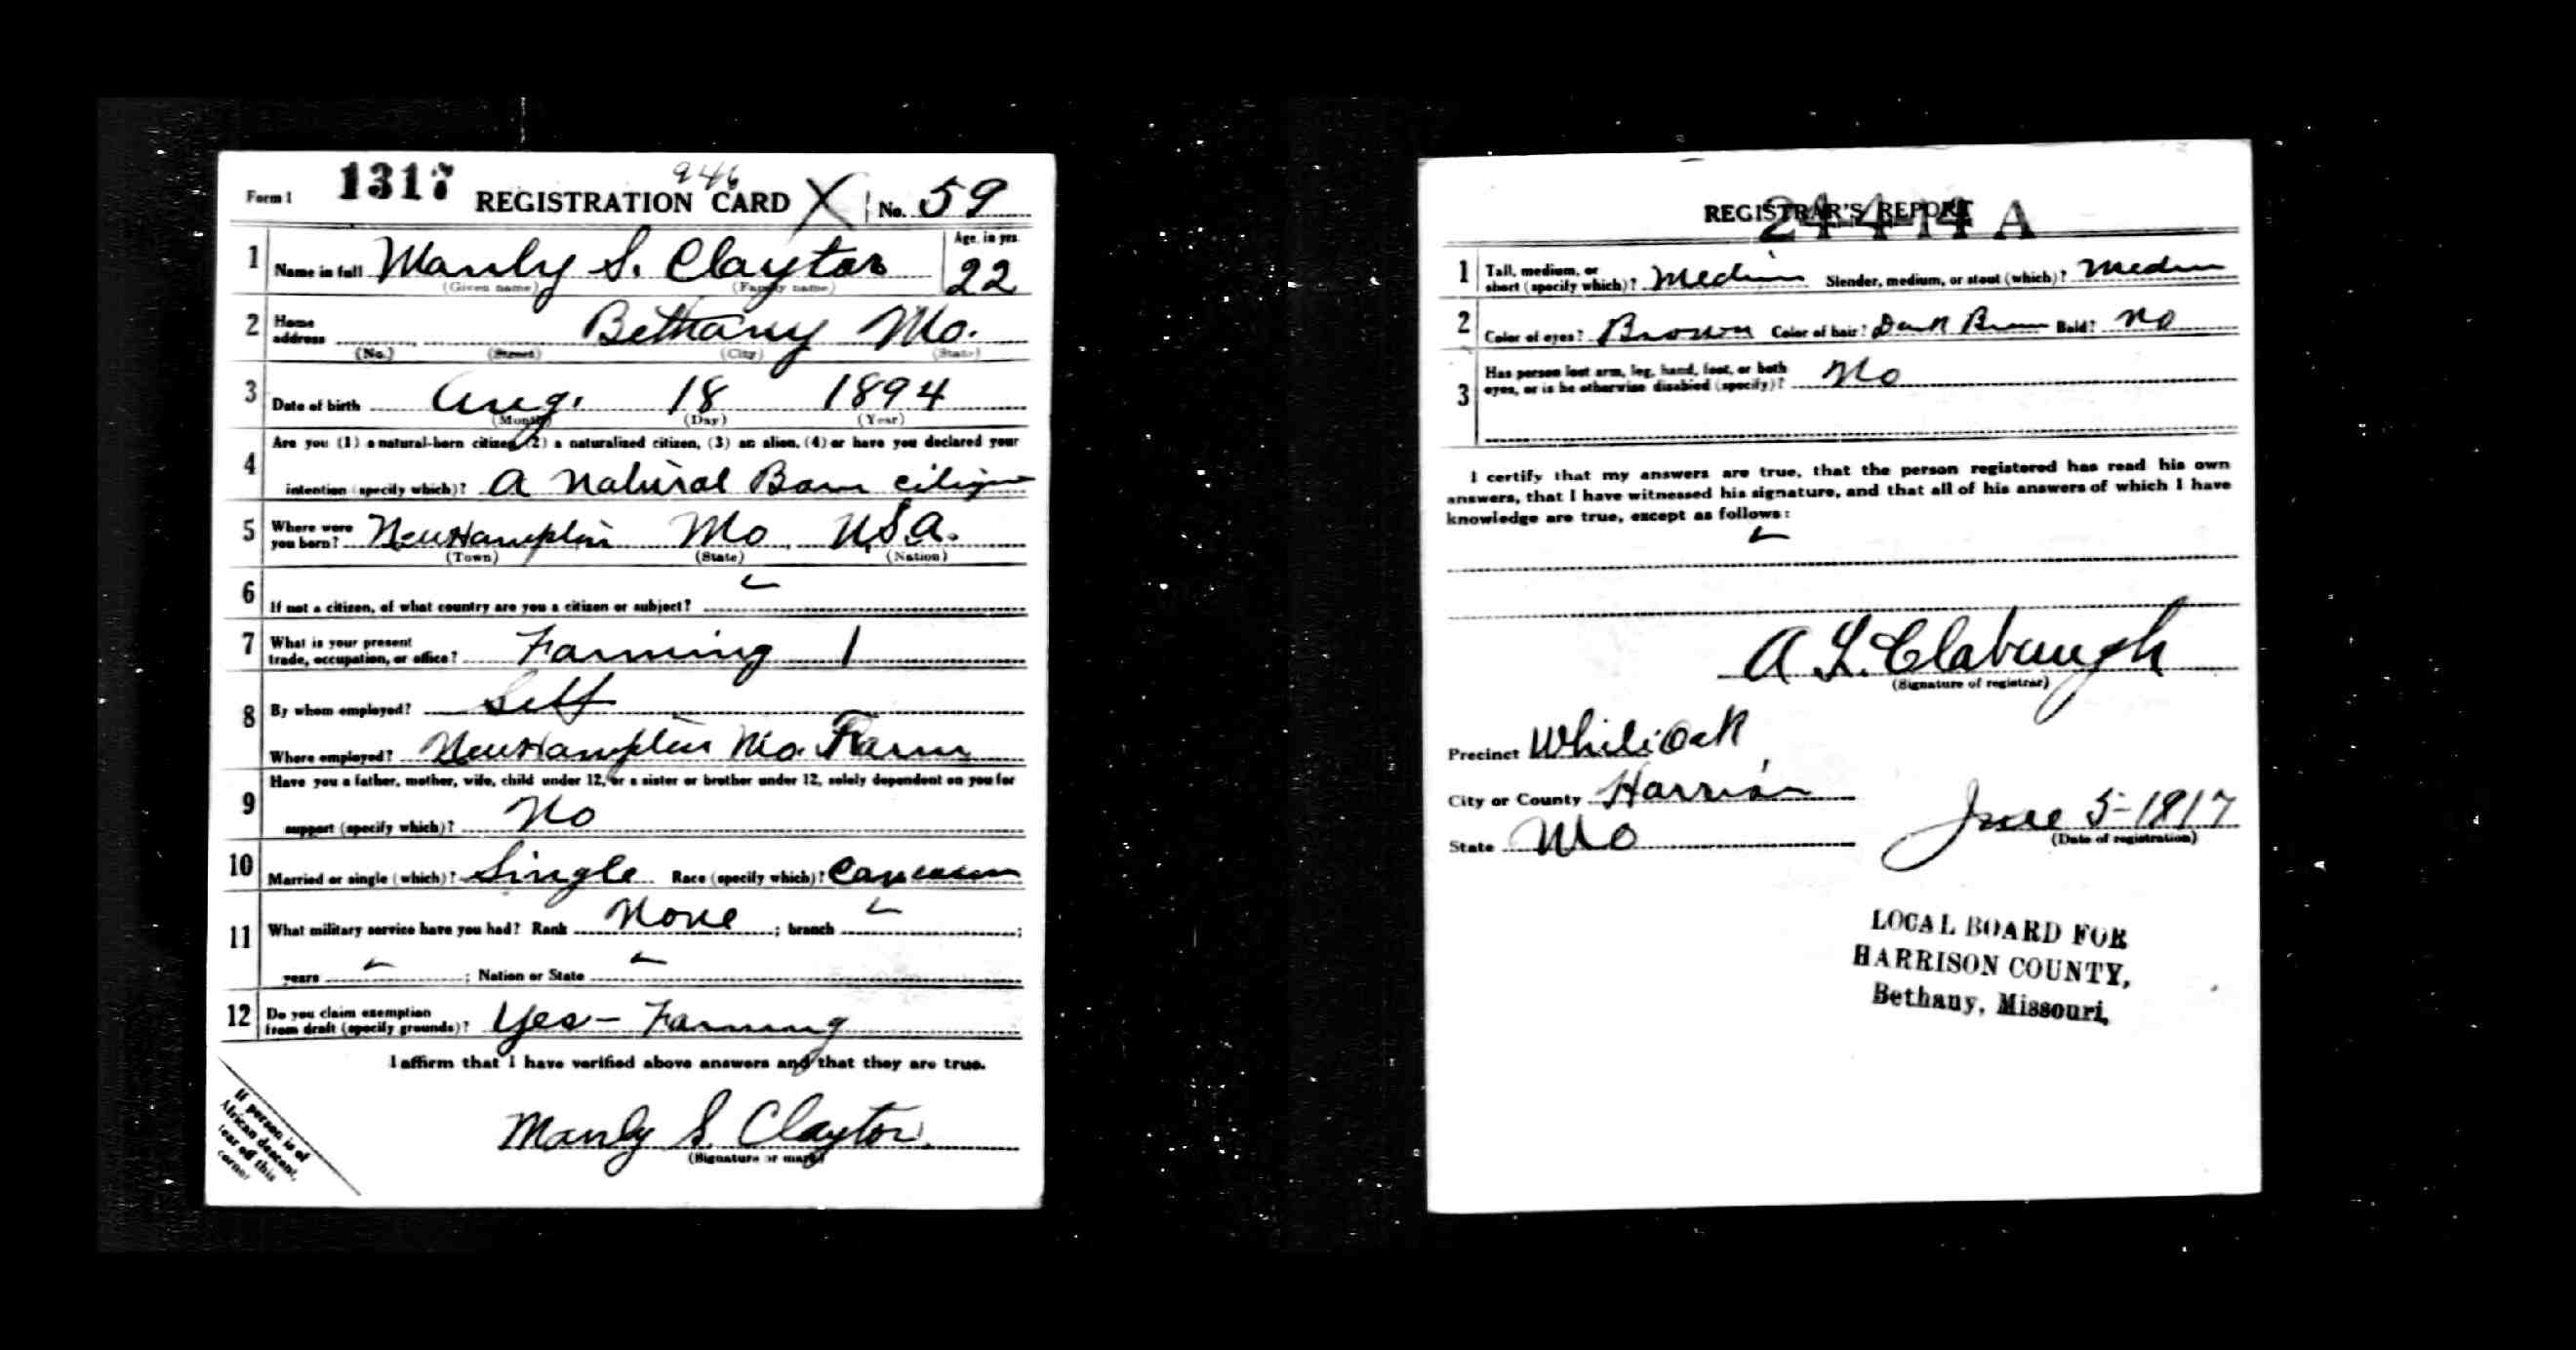 Form 1 1317 946 REGISTRATION CARD X No. 59
1 Name in full Manly S. Clayton Age, in yrs. 22
(Given name) (Family name)
2 Home address Bethany Mo.
(No.) (Street) (City) (State)
3 Date of birth Aug. 18 1894
(Month) (Day) (Year)
4 Are you (1) a natural-born citizen, (2) a naturalized citizen, (3) an alien, (4) or have you declared your
intention (specify which)? A Natural Born citizen
5 Where were you born? New Hampton Mo U.S.A.
(Town) (State) (Nation)
6 If not a citizen, of what country are you a citizen or subject?
7 What is your present trade, occupation, or office? Farming 1
8 By whom employed? Self
Where employed? New Hampton Mo. Farm
9 Have you a father, mother, wife, child under 12, or a sister or brother under 12, solely dependent on you for
support (specify which)? No
10 Married or single (which)? Single Race (specify which)? Caucasian
11 What military service have you had? Rank None ; branch ;
years ; Nation or State
12 Do you claim exemption from draft (specify grounds)? Yes - Farming
I affirm that I have verified above answers and that they are true.
Manly S. Clayton
(Signature or mark)
If person is of
African descent,
tear off this
corner
REGISTRAR'S REPORT
24-4-14 A
1 Tall, medium, or short (specify which)? Medium Slender, medium, or stout (which)? Medium
2 Color of eyes? Brown Color of hair? Dark Brown Bald? No
3 Has person lost arm, leg, hand, foot, or both
eyes, or is he otherwise disabled (specify)? No
I certify that my answers are true, that the person registered has read his own
answers, that I have witnessed his signature, and that all of his answers of which I have
knowledge are true, except as follows:
A. L. Clabaugh
(Signature of registrar)
Precinct White Oak
City or County Harrison
State Mo
June 5-1917
(Date of registration)
LOCAL BOARD FOR
HARRISON COUNTY,
Bethany, Missouri.